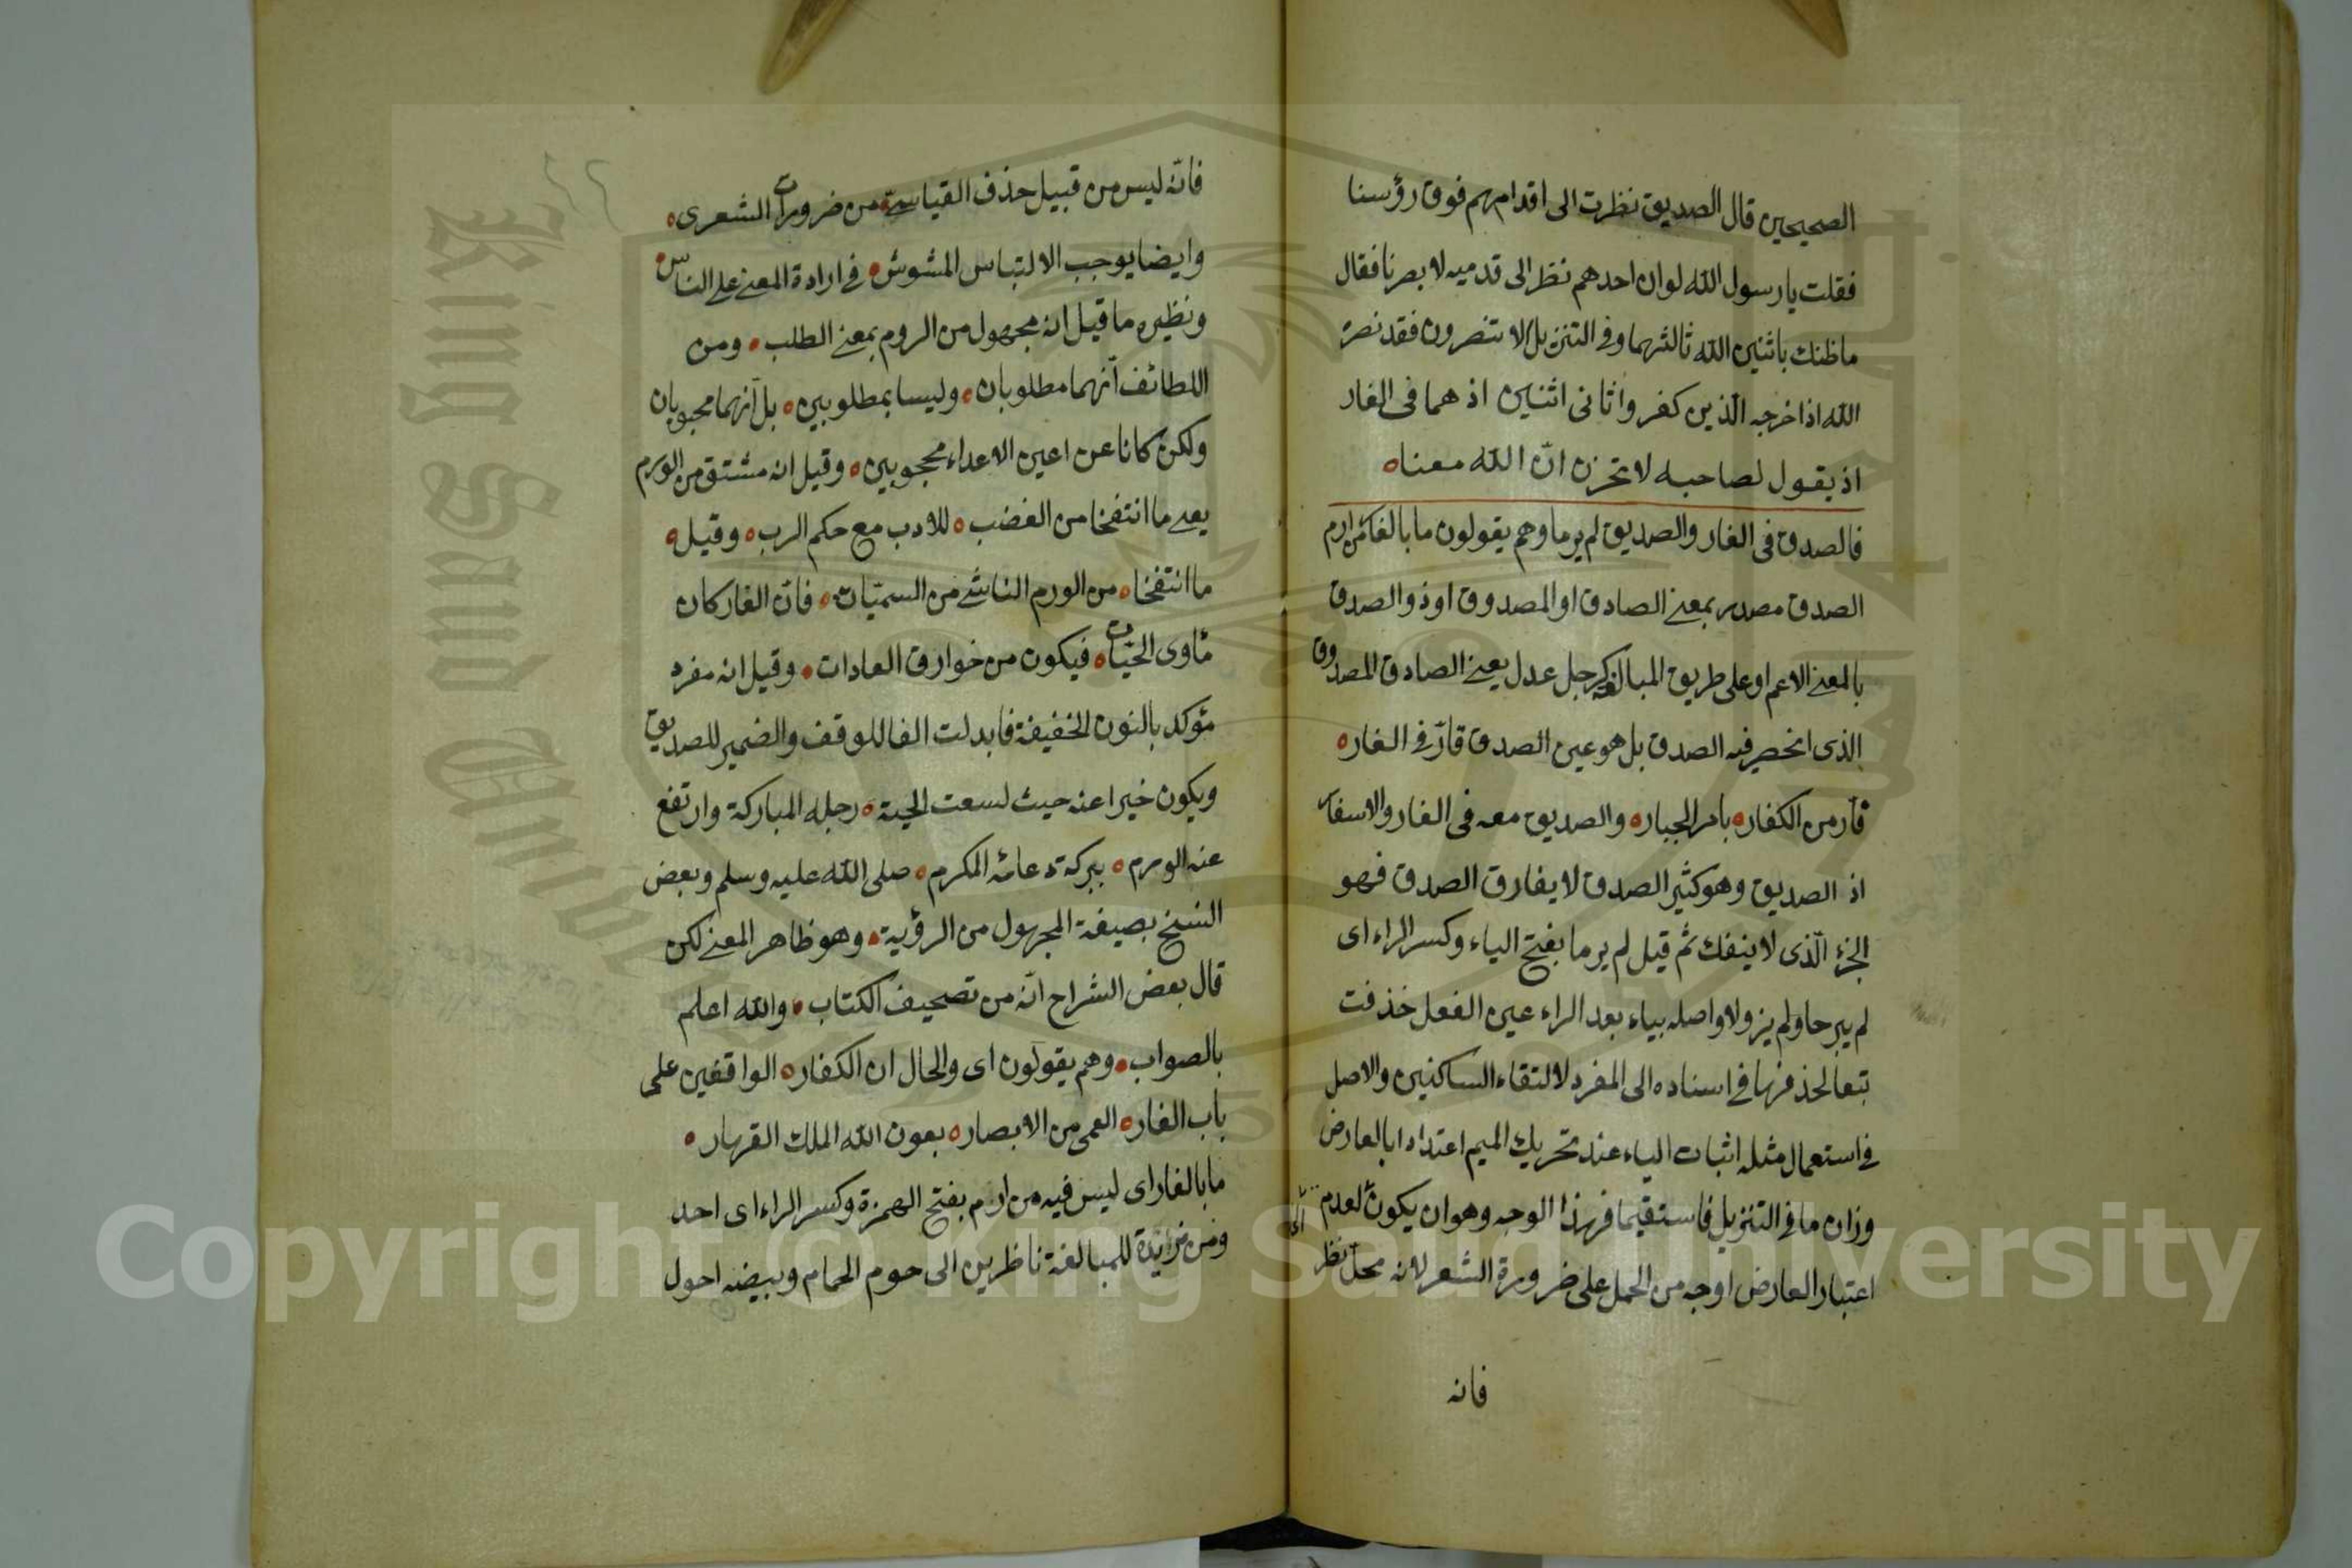 الصحيحين قال الصديق نظرت الى اقدامهم فوق رؤسنا
فقلت يا رسول الله لوان احدهم نظر الى قدميه لابصرنا فقال
ماظنك باثنين الله ثالثهما وفي التنزيل الا تنصرون فقد نصره
الله اذ اخرجه الّذين كفروا ثانى اثنين اذ هما فى الغار
اذ يقول لصاحبه لا تحزن انّ الله معنا
فالصدق فى الغار والصديق لم يرما وهم يقولون ما بالغار من ارم
الصدق مصدر بمعنى الصادق او المصدوق او ذو الصدق
بالمعنى الاعم او على طريق المبالغة كرجل عدل يعنى الصادق المصدوق
الذى انحصر فيه الصدق بل هو عين الصدق قارّ فى الغار
فارّ من الكفار بامر الجبار والصديق معه فى الغار والاسفار
اذ الصديق وهو كثير الصدق لا يفارق الصدق فهو
الجزء الّذى لا ينفك ثم قيل لم يرما بفتح الياء وكسر الراء اى
لم يبرحا ولم يزولا واصله بياء بعد الراء عين الفعل حذفت
تبعا لحذفها فى اسناده الى المفرد لالتقاء الساكنين والاصل
فى استعمال مثله اثبات الياء عند تحريك الميم اعتدادا بالعارض
وزان ما فى التنزيل فاستقيما فهذا الوجه وهو ان يكون لعدم
اعتبار العارض اوجه من الحمل على ضرورة الشعر لانه محل نظر
فانه
فانّه ليس من قبيل حذف القياسىّ من ضرورات الشعرى
وايضا يوجب الالتباس المشوش فى ارادة المعنى على الناس
ونظيره ما قيل انه مجهول من الروم بمعنى الطلب ومن
اللطائف انّهما مطلوبان وليسا بمطلوبين بل انّهما محبوبان
ولكن كانا عن اعين الاعداء محجوبين وقيل انه مشتق من الورم
يعنى ما انتفخا من الغضب للادب مع حكم الرب وقيل
ما انتفخا من الورم الناشى من السميّات فانّ الغار كان
مأوى الحيّات فيكون من خوارق العادات وقيل انه مفرد
مؤكد بالنون الخفيفة فابدلت الفا للوقف والضمير للصديق
ويكون خبرا عنه حيث لسعت الحية رجله المباركة وارتفع
عنه الورم ببركة دعائه المكرم صلى الله عليه وسلم وبعض
النسخ بصيغة المجهول من الرؤية وهو ظاهر المعنى لكن
قال بعض الشراح انّه من تصحيف الكتاب والله اعلم
بالصواب وهم يقولون اى والحال ان الكفار الواقفين على
باب الغار العمى من الابصار بعون الله الملك القهار
ما بالغار اى ليس فيه من ارم بفتح الهمزة وكسر الراء اى احد
ومن مزايدة للمبالغة ناظرين الى حوم الحمام وبيضه احول
King Saud
Copyright © King Saud University